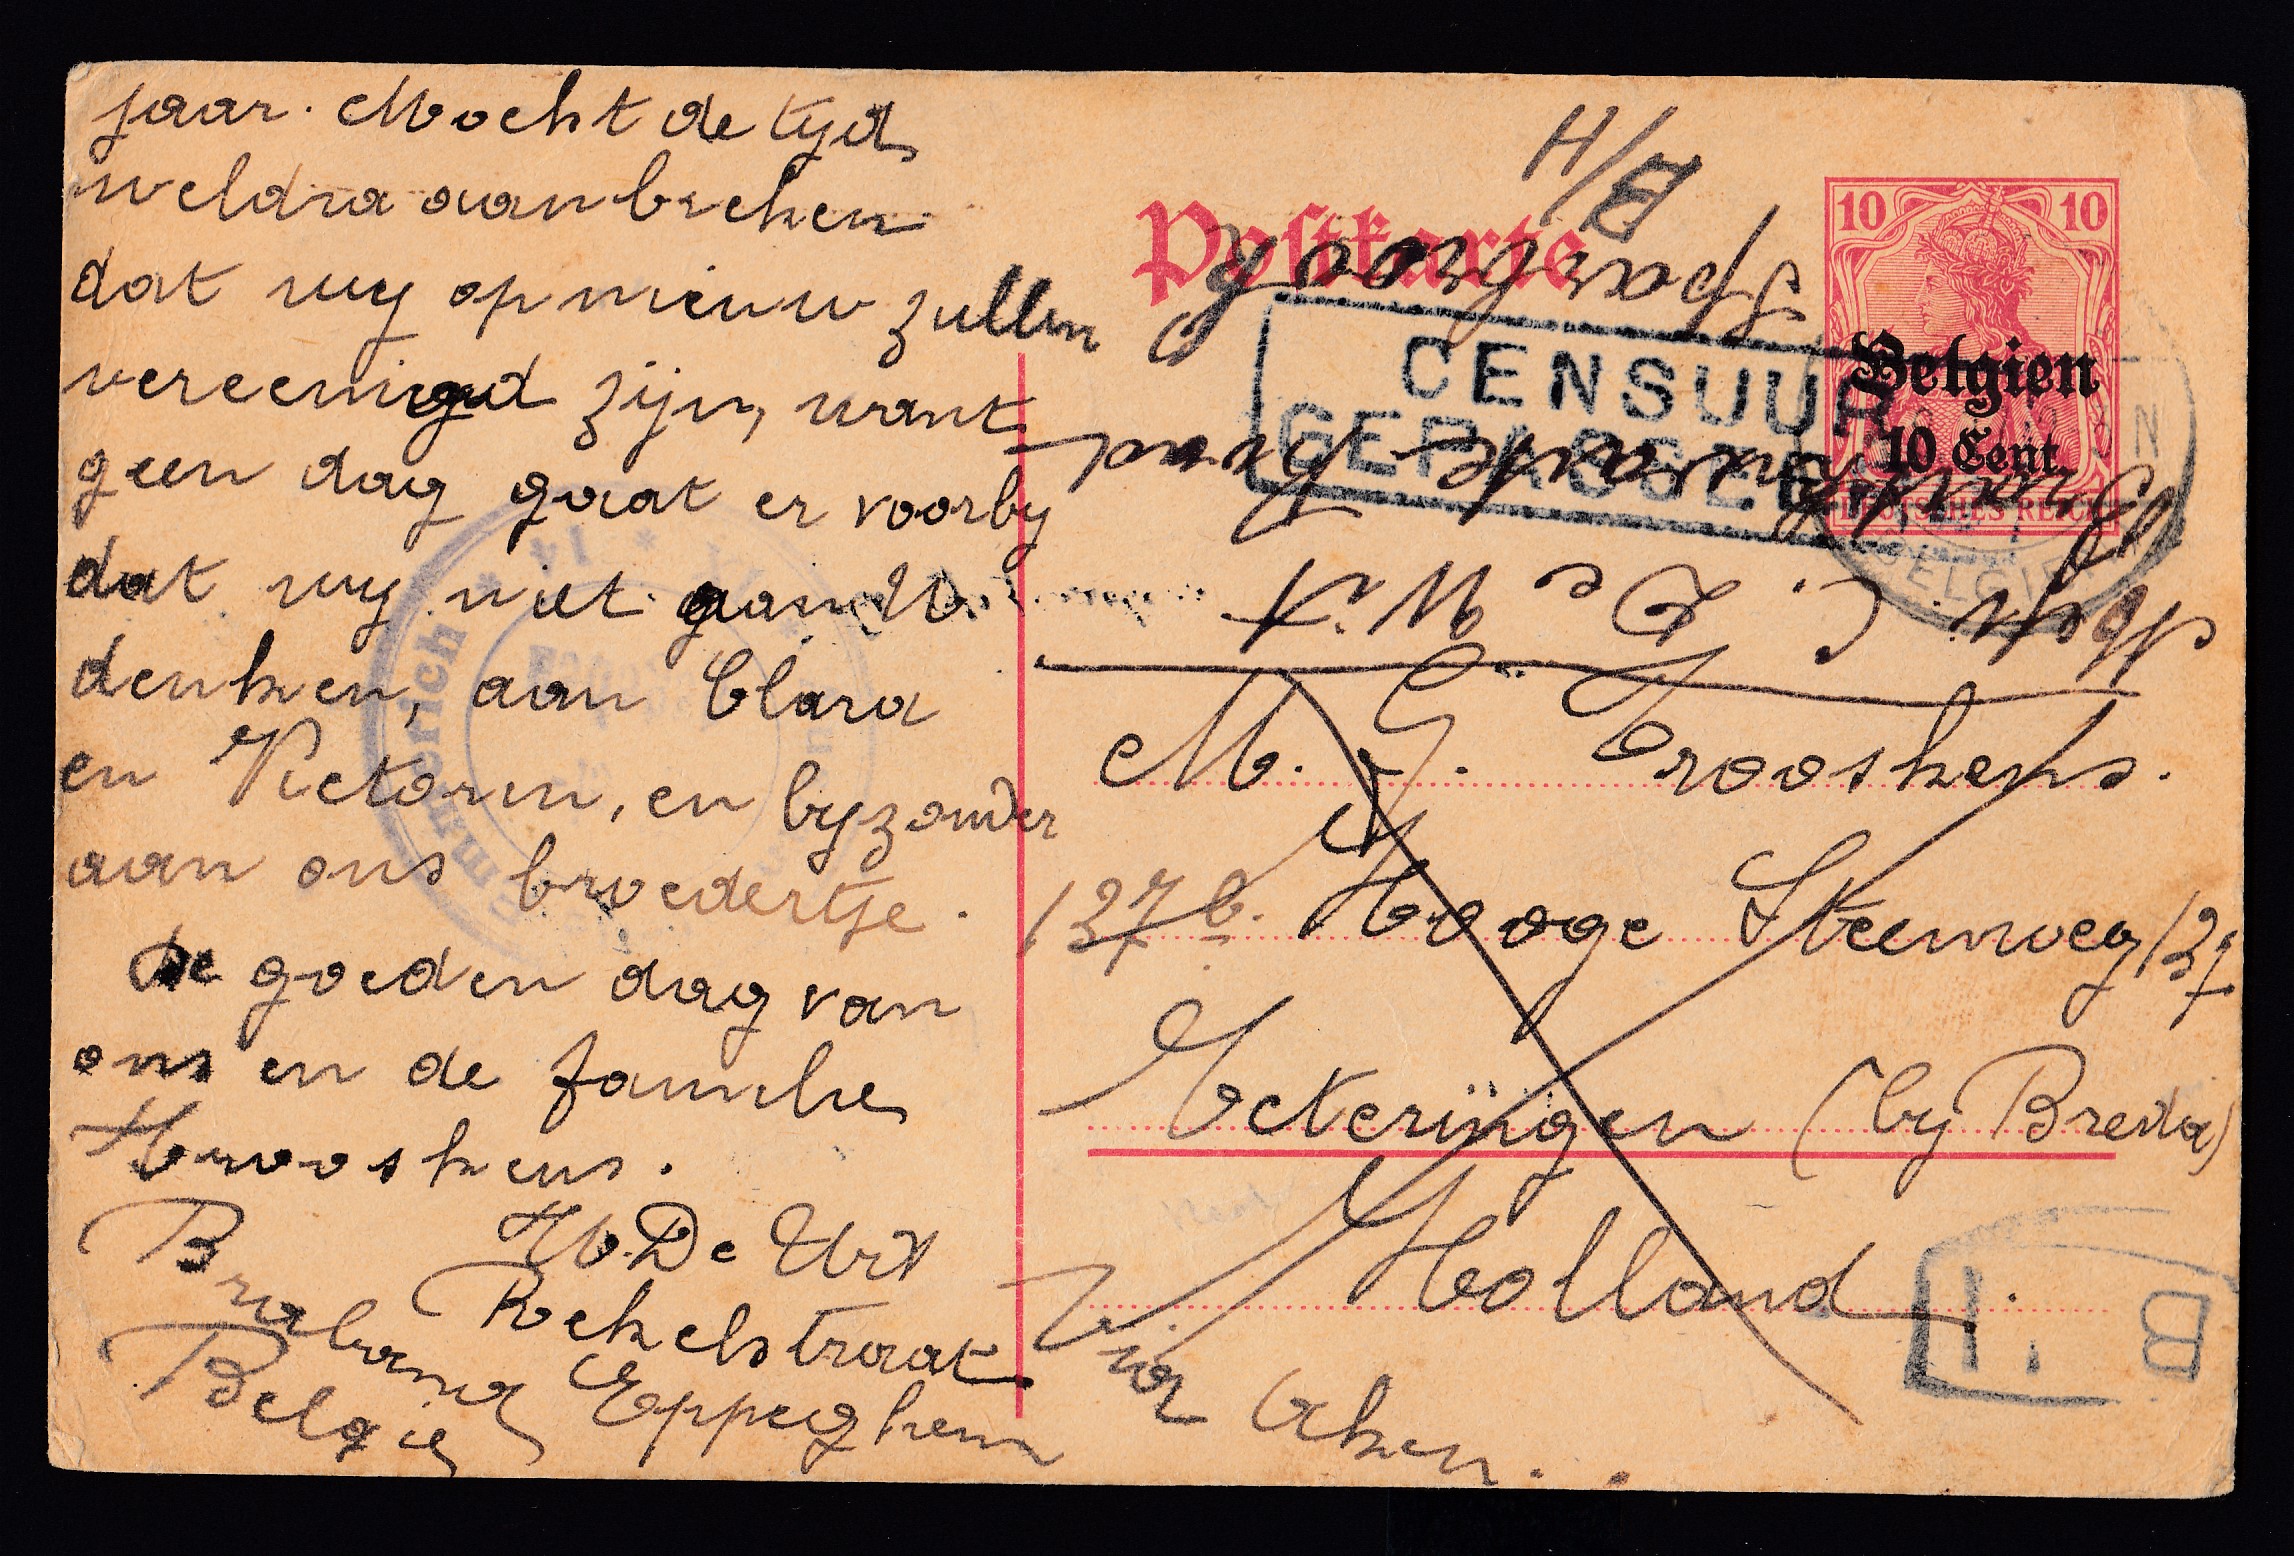 jaar. Mocht de tyd
weldra aanbreken
dat wy opnieuw zullen
vereenigd zijn, want
geen dag gaat er voorby
dat wy niet aan U
denken, aan Clara
en Victorin, en byzonder
aan ons broedertje.
De goeden dag van
ons en de familie
Krooskens.
H. De Wit
Rekelstraat
Eppeghem
Brabant
Belgie
Postkarte
H/B
10 10
Belgien
10 Cent
DEUTSCHES REICH
CENSUUR
GEPASSEERD
BELGIE
C. De Wit
M. G. Trooskens.
137 b. Hooge Steenweg 137
Ecterijngen (by Breda)
Holland
Via Aken.
Emmerich
B